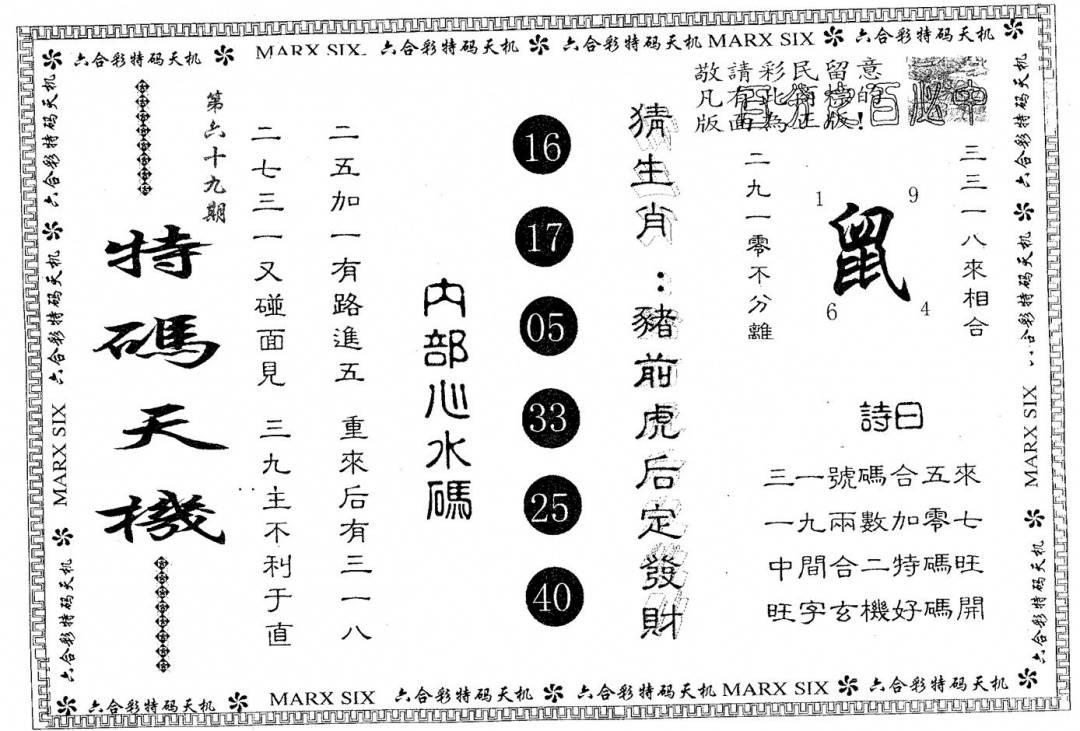 六合彩特码天机 MARX SIX 六合彩特码天机 六合彩特码天机 MARX SIX 六合彩特码天机
敬請彩民留意
版面為正版!
三三一八來相合
1
9
鼠
6
4
二九一零不分離
詩曰
三一號碼合五來
一九兩數加零七
中間合二特碼旺
旺字玄機好碼開
猜生肖：豬前虎后定發財
16
17
05
33
25
40
內部心水碼
二五加一有路進五 重來后有三一八
二七三一又碰面見 三九主不利于直
第六十九期
特碼天機
六合彩特码天机 六合彩特码天机 MARX SIX 六合彩特码天机
六合彩特码天机 六合彩特码天机 MARX SIX 六合彩特码天机
六合彩特码天机 MARX SIX 六合彩特码天机 六合彩特码天机 MARX SIX 六合彩特码天机